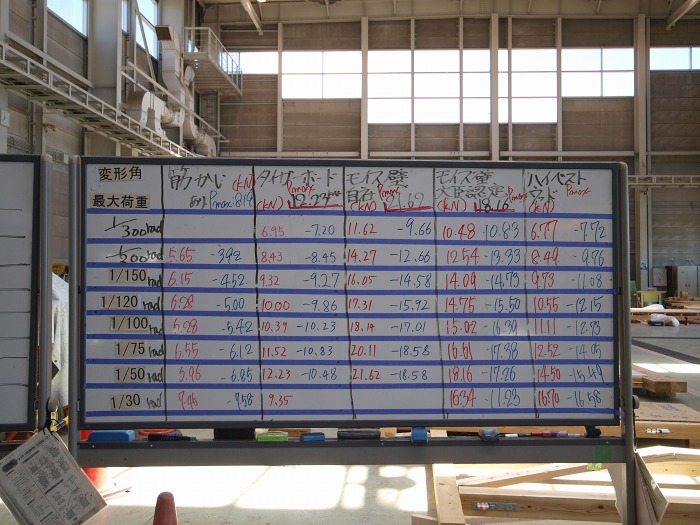 変形角 筋かい (kN) ダイケーボード モイス壁 モイス壁 ハイベスト
最大荷重 Pmax 8.19 (kN) Pmax 12.23 (kN) Pmax 21.62 大臣認定 (kN) Pmax 18.16 ウッド (kN) Pmax
1/300 rad 6.95 -7.20 11.62 -9.66 10.48 -10.83 6.77 -7.72
1/200 rad 5.65 -3.92 8.43 -8.45 14.27 -12.66 12.54 -13.33 8.49 -9.76
1/150 rad 6.15 -4.52 9.32 -9.27 16.05 -14.58 14.09 -14.73 9.73 -11.08
1/120 rad -5.00 10.00 -9.86 17.31 -15.92 14.75 -15.50 10.55 -12.15
1/100 rad -5.42 10.39 -10.23 18.14 -17.01 15.02 11.11
1/75 rad 6.55 -6.12 11.52 -10.83 20.11 -18.58 16.61 -17.38 12.52 -14.05
1/50 rad 5.96 12.23 -10.48 21.62 -18.58 18.16 -17.26 14.50
1/30 rad 9.35 16.34 -11.23 16.70 -16.58